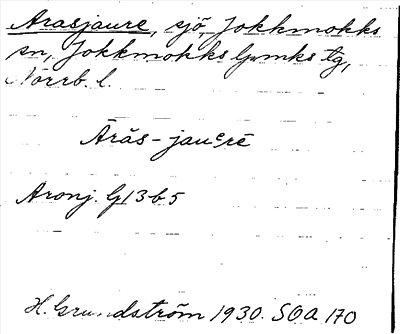 Arasjaure, sjö, Jokkmokks
sn, Jokkmokks lpmks tg,
Norrb. l.
Ārăs-jauᵉrē
Aronj. G13b5
H. Grundström 1930. SOA 170